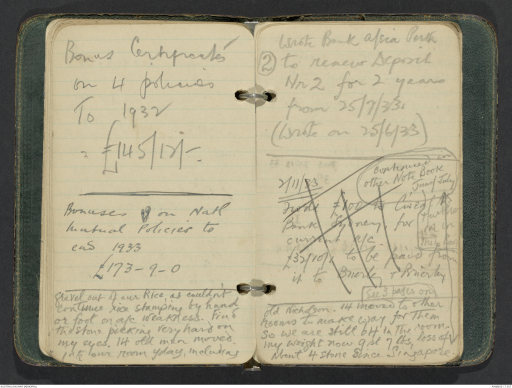 Bonus Certificates
on 4 policies
To 1932
= £145/12/-.
Bonuses on Natl
Mutual Policies to
end 1933
£173-9-0
gravel out of our Rice as couldn't
continue rice stamping by hand
or foot on a/c weakness. Find
the stone picking very hard on
my eyes. 14 old men moved
into our room y'day, including
Wrote Bank a/sia Perth
② to renew Deposit
Nr 2 for 2 years
from 25/7/33.
(Wrote on 25/6/33)
continued on
other Note Book
June/July
2/11/33
Bank Sydney for
current a/c.
£32/10/- to be paid from
it to Brierly & Brierly
See 3 pages on
old Nicholson. 14 moved to other
rooms to make way for them
So we are still 64 in the room.
My weight now 9 st 7 lbs, loss of
about 4 stone since Singapore